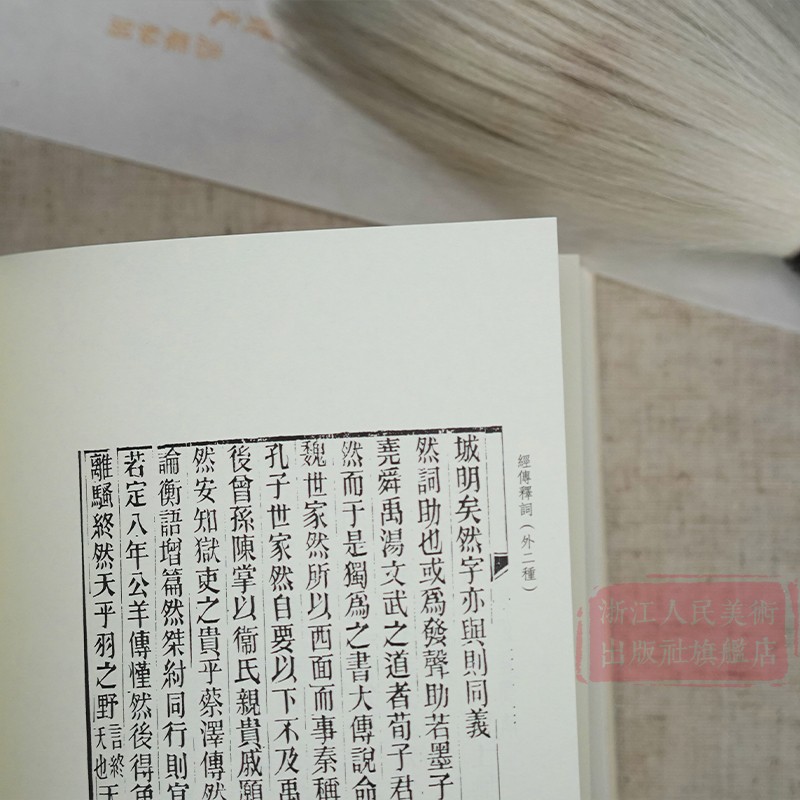 經傳釋詞(外二種)
城明矣然字亦與則同義
然詞助也或為發聲助若墨子
堯舜禹湯文武之道者荀子君
然而于是獨為之書大傳說命
魏世家然所以西面而事秦稱
孔子世家然自要以下不及禹
後曾孫陳掌以衞氏親貴戚願
然安知獄吏之貴乎蔡澤傳然
論衡語增篇然桀紂同行則宜
若定八年公羊傳慬然後得免
離騷終然夭乎羽之野言終夭也夭
浙江人民美術
出版社旗艦店